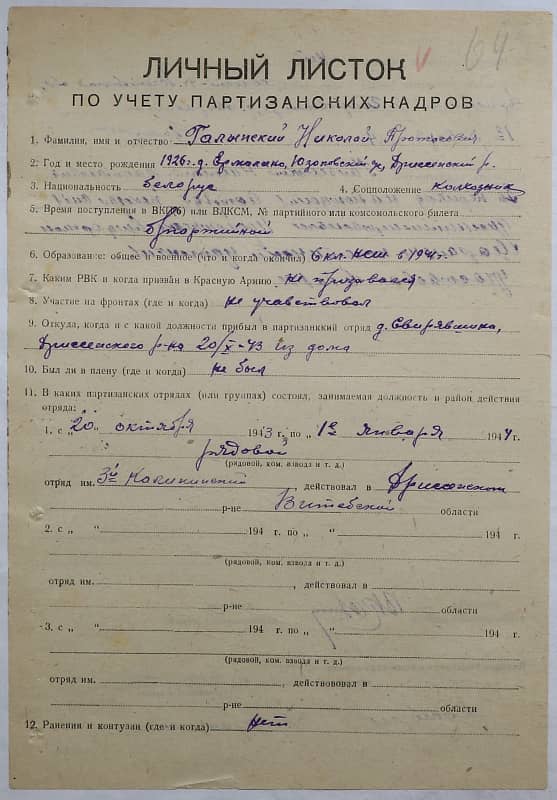 64
ЛИЧНЫЙ ЛИСТОК
ПО УЧЕТУ ПАРТИЗАНСКИХ КАДРОВ
1. Фамилия, имя и отчество Галынский Николай
2. Год и место рождения 1926 г. д. Юзоповский Дриссенский р.
3. Национальность белорус 4. Соцположение колхозник
5. Время поступления в ВКП(б) или ВЛКСМ, № партийного или комсомольского билета
6. Образование: общее и военное (что и когда окончил) 6 кл. НСШ в 1941 г.
7. Каким РВК и когда призван в Красную Армию не призывался
8. Участие на фронтах (где и когда) не участвовал
9. Откуда, когда и с какой должности прибыл в партизанский отряд д.
Дриссенского р-на 20/X-43 из дома
10. Был ли в плену (где и когда) не был
11. В каких партизанских отрядах (или группах) состоял, занимаемая должность и район действия
отряда:
1. с „20„ октября 1943 г. по „1„ января 1944 г.
рядовой
(рядовой, ком. взвода и т. д.)
отряд им. 3й Калининский, действовал в Дриссенском
р-не Витебской области
2. с „ “ 194 г. по „ “ 194 г.
(рядовой, ком. взвода и т. д.)
отряд им. , действовал в
р-не области
3. с „ “ 194 г. по „ “ 194 г.
(рядовой, ком. взвода и т. д.)
отряд им. , действовал в
р-не области
12. Ранения и контузии (где и когда) нет